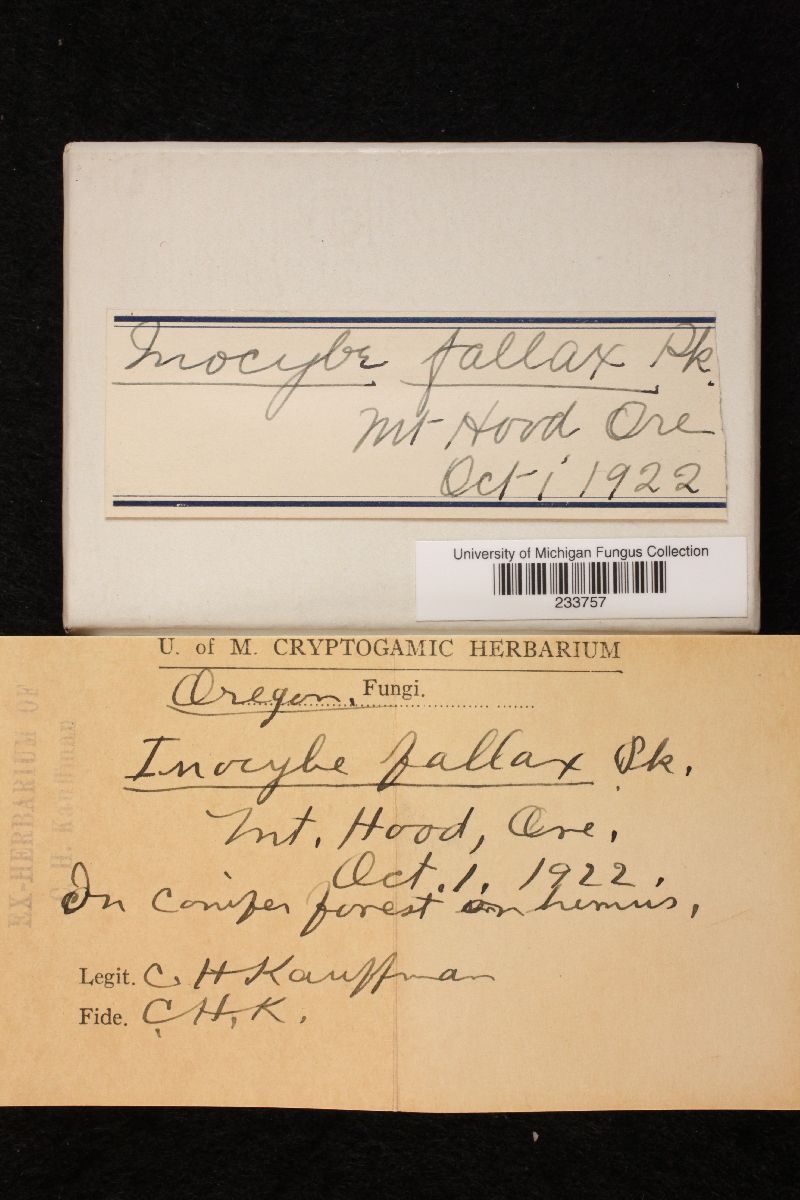 Inocybe fallax Pk.
Mt Hood Ore
Oct 1 1922
University of Michigan Fungus Collection
233757
U. of M. CRYPTOGAMIC HERBARIUM
Oregon. Fungi.
Inocybe fallax Pk.
Mt. Hood, Ore.
Oct. 1. 1922.
In conifer forest on humus.
Legit. C. H Kauffman
Fide. C. H. K.
EX-HERBARIUM OF
C. H. Kauffman